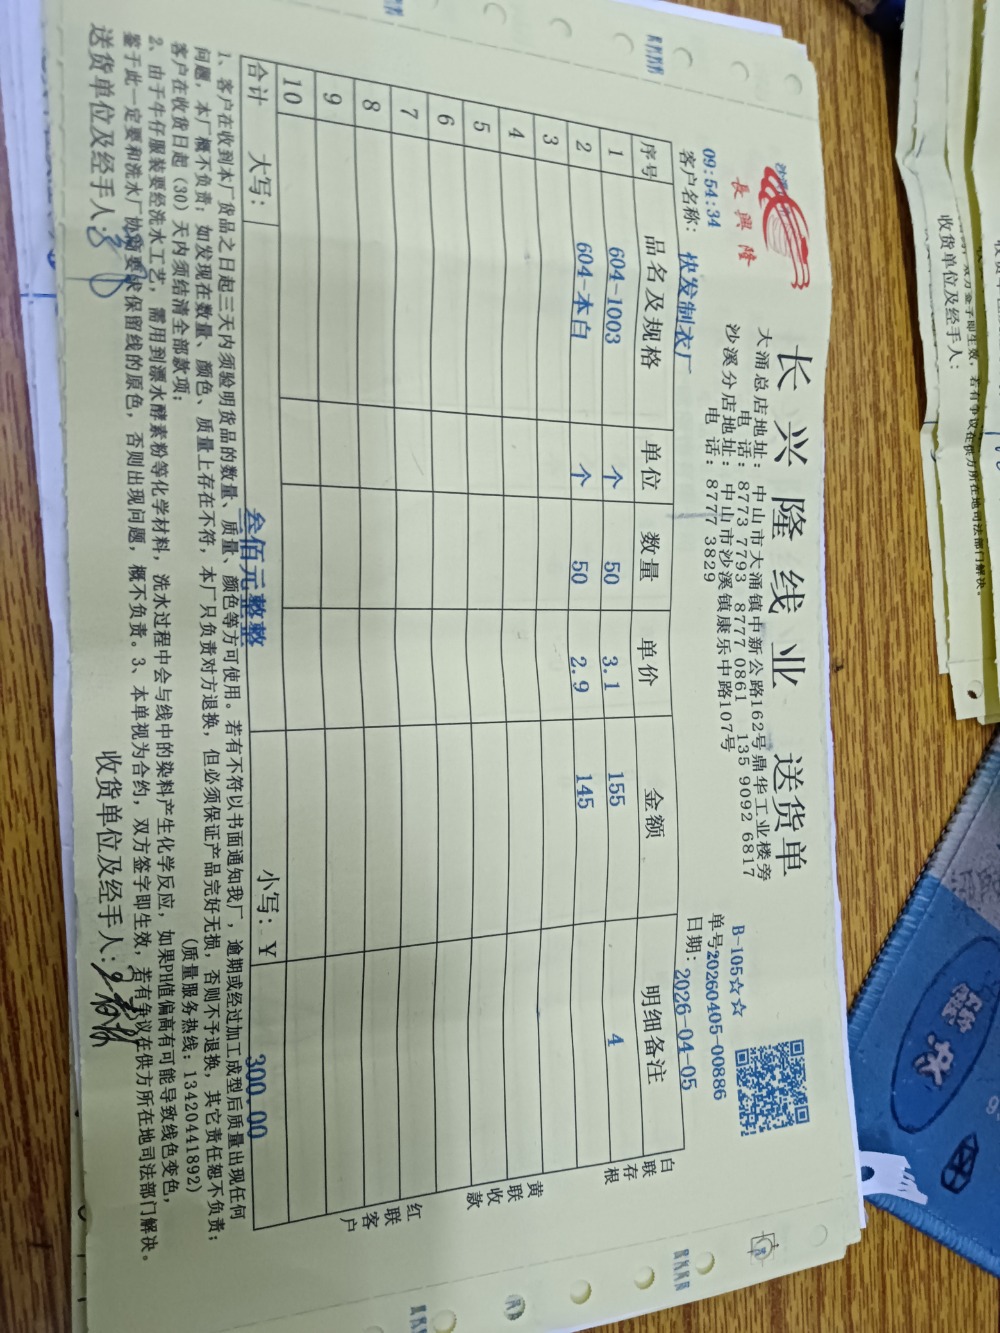 長興隆
长兴隆线业 送货单
大涌总店地址：中山市大涌镇中新公路162号鼎华工业楼旁
电 话：8773 7793 8777 0861 135 9092 6817
沙溪分店地址：中山市沙溪镇康乐中路107号
电 话：8777 3829
B-105☆☆
单号20260405-00886
日期：2026-04-05
09:54:34
客户名称：快发制衣厂
序号 品名及规格 单位 数量 单价 金额 明细备注
1 604-1003 个 50 3.1 155 4
2 604-本白 个 50 2.9 145
3
4
5
6
7
8
9
10
合计 大写： 叁佰元整整 小写：￥ 300.00
白联存根
黄联收款
红联客户
1、客户在收到本厂货品之日起三天内须验明货品的数量、质量、颜色等方可使用。若有不符以书面通知我厂，逾期或经过加工成型后质量出现任何
问题，本厂概不负责；如发现在数量、颜色、质量上存在不符，本厂只负责对方退换，但必须保证产品完好无损，否则不予退换，其它责任恕不负责；
客户在收货日起（30）天内须结清全部款项； （质量服务热线：13420441892）
2、由于牛仔服装要经洗水工艺，需用到漂水酵素粉等化学材料，洗水过程中会与线中的染料产生化学反应，如果PH值偏高有可能导致线色变色，
鉴于此一定要和洗水厂协商要求保留线的原色，否则出现问题，概不负责。3、本单视为合约，双方签字即生效，若有争议在供方所在地司法部门解决。
送货单位及经手人： 收货单位及经手人：
双方签字即生效，若有争议在供方所在地司法部门解决。
收货单位及经手人：